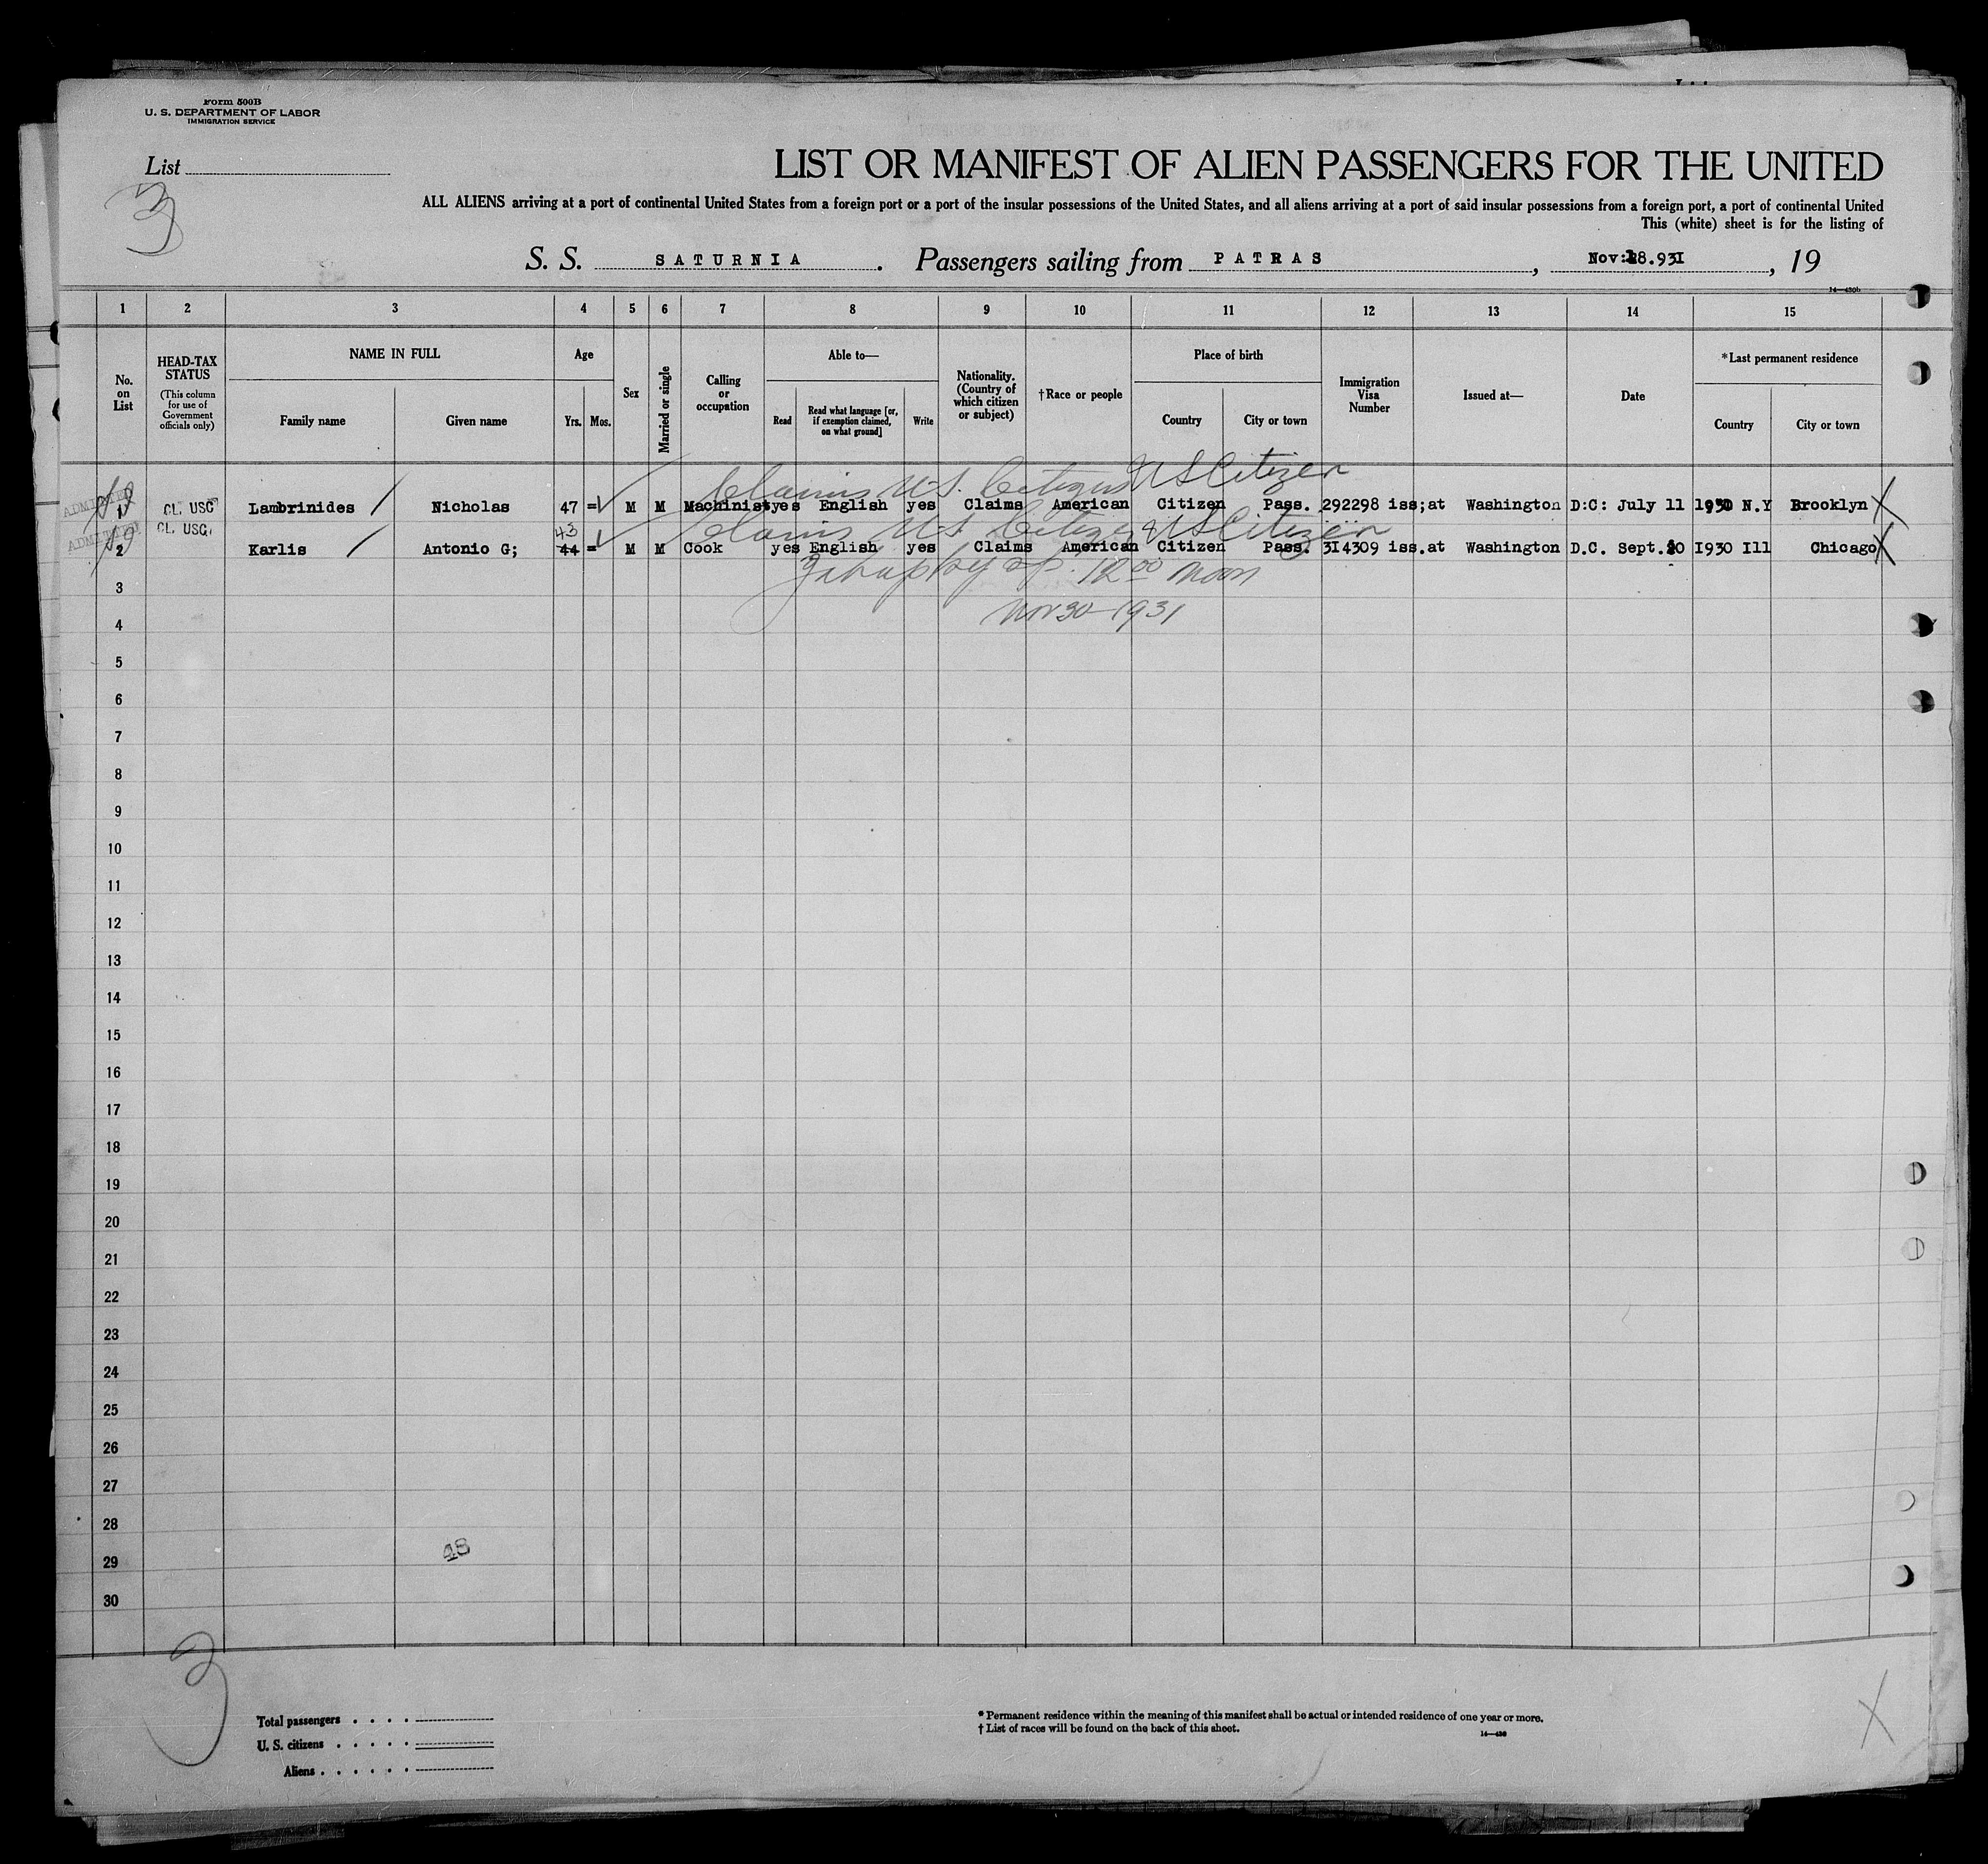 Form 500B
U. S. DEPARTMENT OF LABOR
IMMIGRATION SERVICE
List
3
LIST OR MANIFEST OF ALIEN PASSENGERS FOR THE UNITED
ALL ALIENS arriving at a port of continental United States from a foreign port or a port of the insular possessions of the United States, and all aliens arriving at a port of said insular possessions from a foreign port, a port of continental United
This (white) sheet is for the listing of
S. S. SATURNIA. Passengers sailing from PATRAS, Nov:18.931, 19
14—430b
1 2 3 4 5 6 7 8 9 10 11 12 13 14 15
No. on List
HEAD-TAX STATUS
(This column for use of Government officials only)
NAME IN FULL
Family name
Given name
Age
Yrs.
Mos.
Sex
Married or single
Calling or occupation
Able to—
Read
Read what language [or, if exemption claimed, on what ground]
Write
Nationality. (Country of which citizen or subject)
†Race or people
Place of birth
Country
City or town
Immigration Visa Number
Issued at—
Date
*Last permanent residence
Country
City or town
Claims U.S. Citizen US Citizen
ADMITTED 1 CL. USC Lambrinides Nicholas 47 = M M Machinist yes English yes Claims American Citizen Pass. 292298 iss;at Washington D.C: July 11 1930 N.Y Brooklyn X
Claims U.S. Citizen US Citizen
43
ADMITTED 2 CL. USC. Karlis Antonio G; 44 = M M Cook yes English yes Claims American Citizen Pass. 3I4309 iss.at Washington D.C. Sept. I930 Ill Chicago X
12 00 noon
3
Nov 30-1931
4
5
6
7
8
9
10
11
12
13
14
15
16
17
18
19
20
21
22
23
24
25
26
27
28
48
29
30
3
Total passengers . . . .
U. S. citizens . . . . .
Aliens . . . . . .
* Permanent residence within the meaning of this manifest shall be actual or intended residence of one year or more.
† List of races will be found on the back of this sheet.
14—430
X